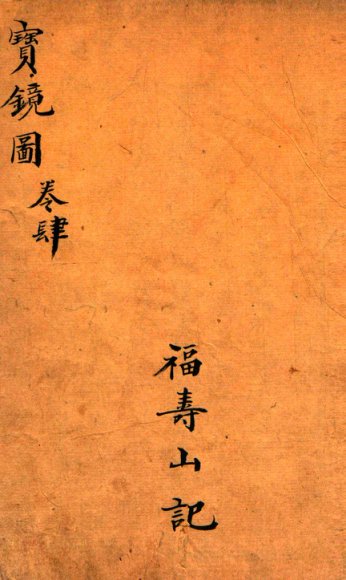 寶鏡圖
卷肆
福壽山記